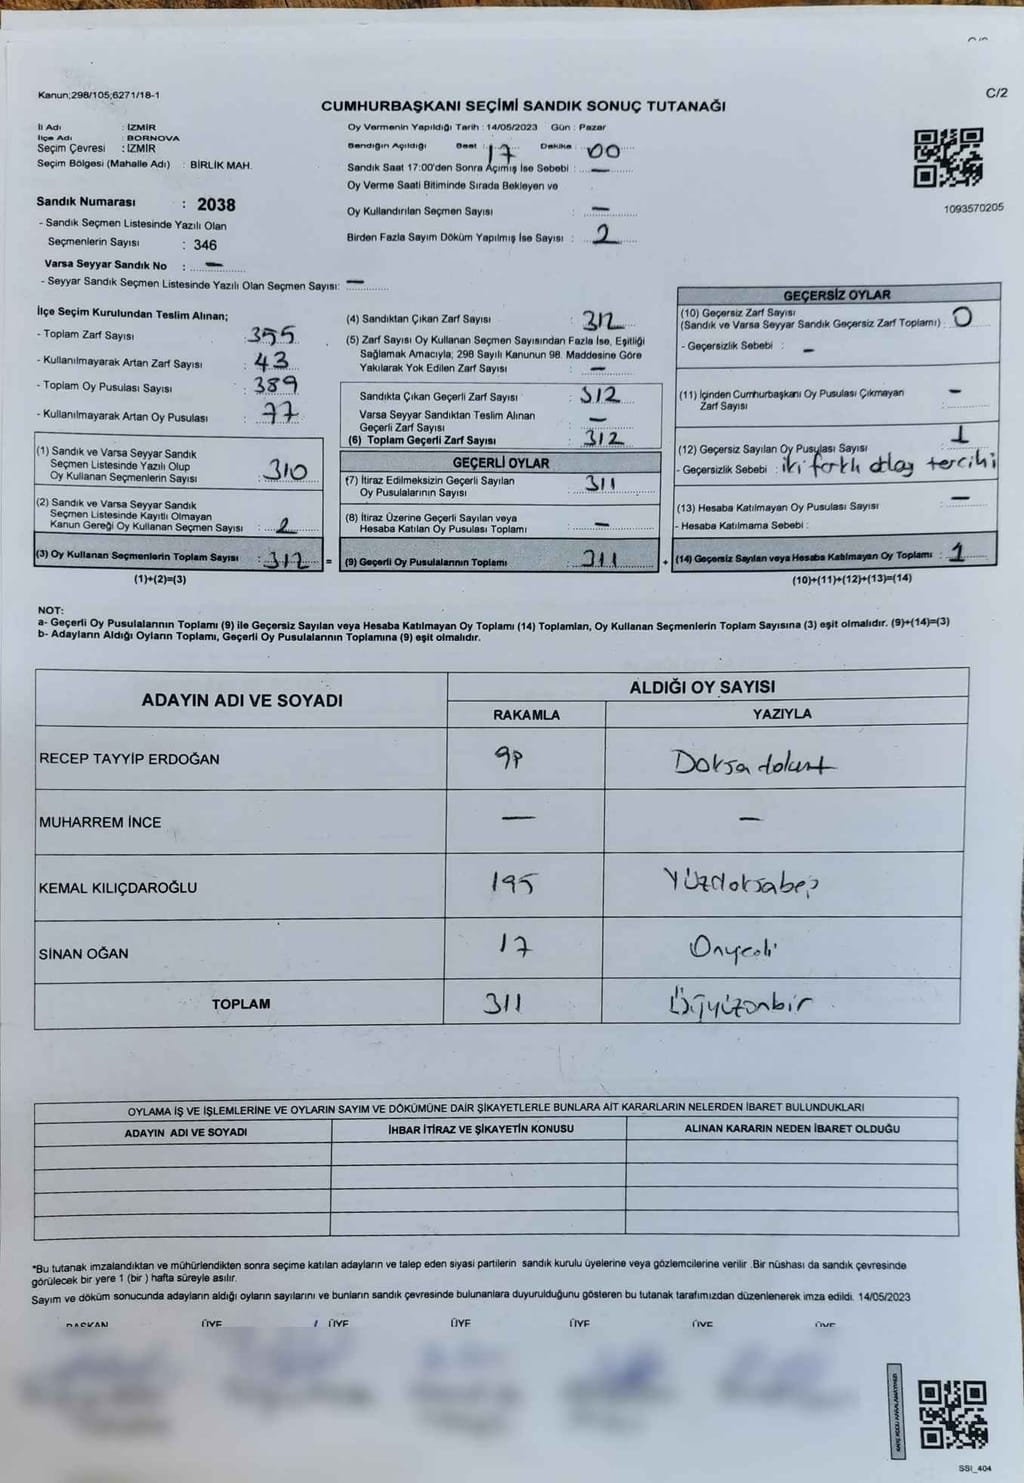 Kanun;298/105;6271/18-1
C/2
CUMHURBAŞKANI SEÇİMİ SANDIK SONUÇ TUTANAĞI
İl Adı : İZMİR
İlçe Adı : BORNOVA
Seçim Çevresi : İZMİR
Seçim Bölgesi (Mahalle Adı) : BİRLİK MAH.
Sandık Numarası : 2038
- Sandık Seçmen Listesinde Yazılı Olan
Seçmenlerin Sayısı : 346
Varsa Seyyar Sandık No : —
- Seyyar Sandık Seçmen Listesinde Yazılı Olan Seçmen Sayısı: —
Oy Vermenin Yapıldığı Tarih : 14/05/2023 Gün : Pazar
Sandığın Açıldığı Saat : 17 Dakika : 00
Sandık Saat 17:00'den Sonra Açımış İse Sebebi : —
Oy Verme Saati Bitiminde Sırada Bekleyen ve
Oy Kullandırılan Seçmen Sayısı : —
Birden Fazla Sayım Döküm Yapılmış İse Sayısı : 2
1093570205
İlçe Seçim Kurulundan Teslim Alınan;
- Toplam Zarf Sayısı : 355
- Kullanılmayarak Artan Zarf Sayısı : 43
- Toplam Oy Pusulası Sayısı : 389
- Kullanılmayarak Artan Oy Pusulası : 77
(1) Sandık ve Varsa Seyyar Sandık
Seçmen Listesinde Yazılı Olup
Oy Kullanan Seçmenlerin Sayısı : 310
(2) Sandık ve Varsa Seyyar Sandık
Seçmen Listesinde Kayıtlı Olmayan
Kanun Gereği Oy Kullanan Seçmen Sayısı : 2
(3) Oy Kullanan Seçmenlerin Toplam Sayısı : 312
(1)+(2)=(3)
(4) Sandıktan Çıkan Zarf Sayısı : 312
(5) Zarf Sayısı Oy Kullanan Seçmen Sayısından Fazla İse, Eşitliği
Sağlamak Amacıyla; 298 Sayılı Kanunun 98. Maddesine Göre
Yakılarak Yok Edilen Zarf Sayısı : —
Sandıkta Çıkan Geçerli Zarf Sayısı : 312
Varsa Seyyar Sandıktan Teslim Alınan
Geçerli Zarf Sayısı : —
(6) Toplam Geçerli Zarf Sayısı : 312
GEÇERLİ OYLAR
(7) İtiraz Edilmeksizin Geçerli Sayılan
Oy Pusulalarının Sayısı : 311
(8) İtiraz Üzerine Geçerli Sayılan veya
Hesaba Katılan Oy Pusulası Toplamı : —
= (9) Geçerli Oy Pusulalarının Toplamı : 311
GEÇERSİZ OYLAR
(10) Geçersiz Zarf Sayısı
(Sandık ve Varsa Seyyar Sandık Geçersiz Zarf Toplamı) : 0
- Geçersizlik Sebebi : —
(11) İçinden Cumhurbaşkanı Oy Pusulası Çıkmayan
Zarf Sayısı : —
(12) Geçersiz Sayılan Oy Pusulası Sayısı : 1
- Geçersizlik Sebebi : iki farklı aday tercihi
(13) Hesaba Katılmayan Oy Pusulası Sayısı : —
- Hesaba Katılmama Sebebi :
+ (14) Geçersiz Sayılan veya Hesaba Katılmayan Oy Toplamı : 1
(10)+(11)+(12)+(13)=(14)
NOT:
a- Geçerli Oy Pusulalarının Toplamı (9) ile Geçersiz Sayılan veya Hesaba Katılmayan Oy Toplamı (14) Toplamları, Oy Kullanan Seçmenlerin Toplam Sayısına (3) eşit olmalıdır. (9)+(14)=(3)
b- Adayların Aldığı Oyların Toplamı, Geçerli Oy Pusulalarının Toplamına (9) eşit olmalıdır.
ADAYIN ADI VE SOYADI ALDIĞI OY SAYISI
RAKAMLA YAZIYLA
RECEP TAYYİP ERDOĞAN 99 Doksadokuz
MUHARREM İNCE — —
KEMAL KILIÇDAROĞLU 195 Yüzdoksabeş
SİNAN OĞAN 17 Onyedi
TOPLAM 311 Üçyüzonbir
OYLAMA İŞ VE İŞLEMLERİNE VE OYLARIN SAYIM VE DÖKÜMÜNE DAİR ŞİKAYETLERLE BUNLARA AİT KARARLARIN NELERDEN İBARET BULUNDUKLARI
ADAYIN ADI VE SOYADI İHBAR İTİRAZ VE ŞİKAYETİN KONUSU ALINAN KARARIN NEDEN İBARET OLDUĞU
*Bu tutanak imzalandıktan ve mühürlendikten sonra seçime katılan adayların ve talep eden siyasi partilerin sandık kurulu üyelerine veya gözlemcilerine verilir .Bir nüshası da sandık çevresinde
görülecek bir yere 1 (bir ) hafta süreyle asılır.
Sayım ve döküm sonucunda adayların aldığı oyların sayılarını ve bunların sandık çevresinde bulunanlara duyurulduğunu gösteren bu tutanak tarafımızdan düzenlenerek imza edildi. 14/05/2023
BAŞKAN ÜYE ÜYE ÜYE ÜYE ÜYE ÜYE
SSI_404